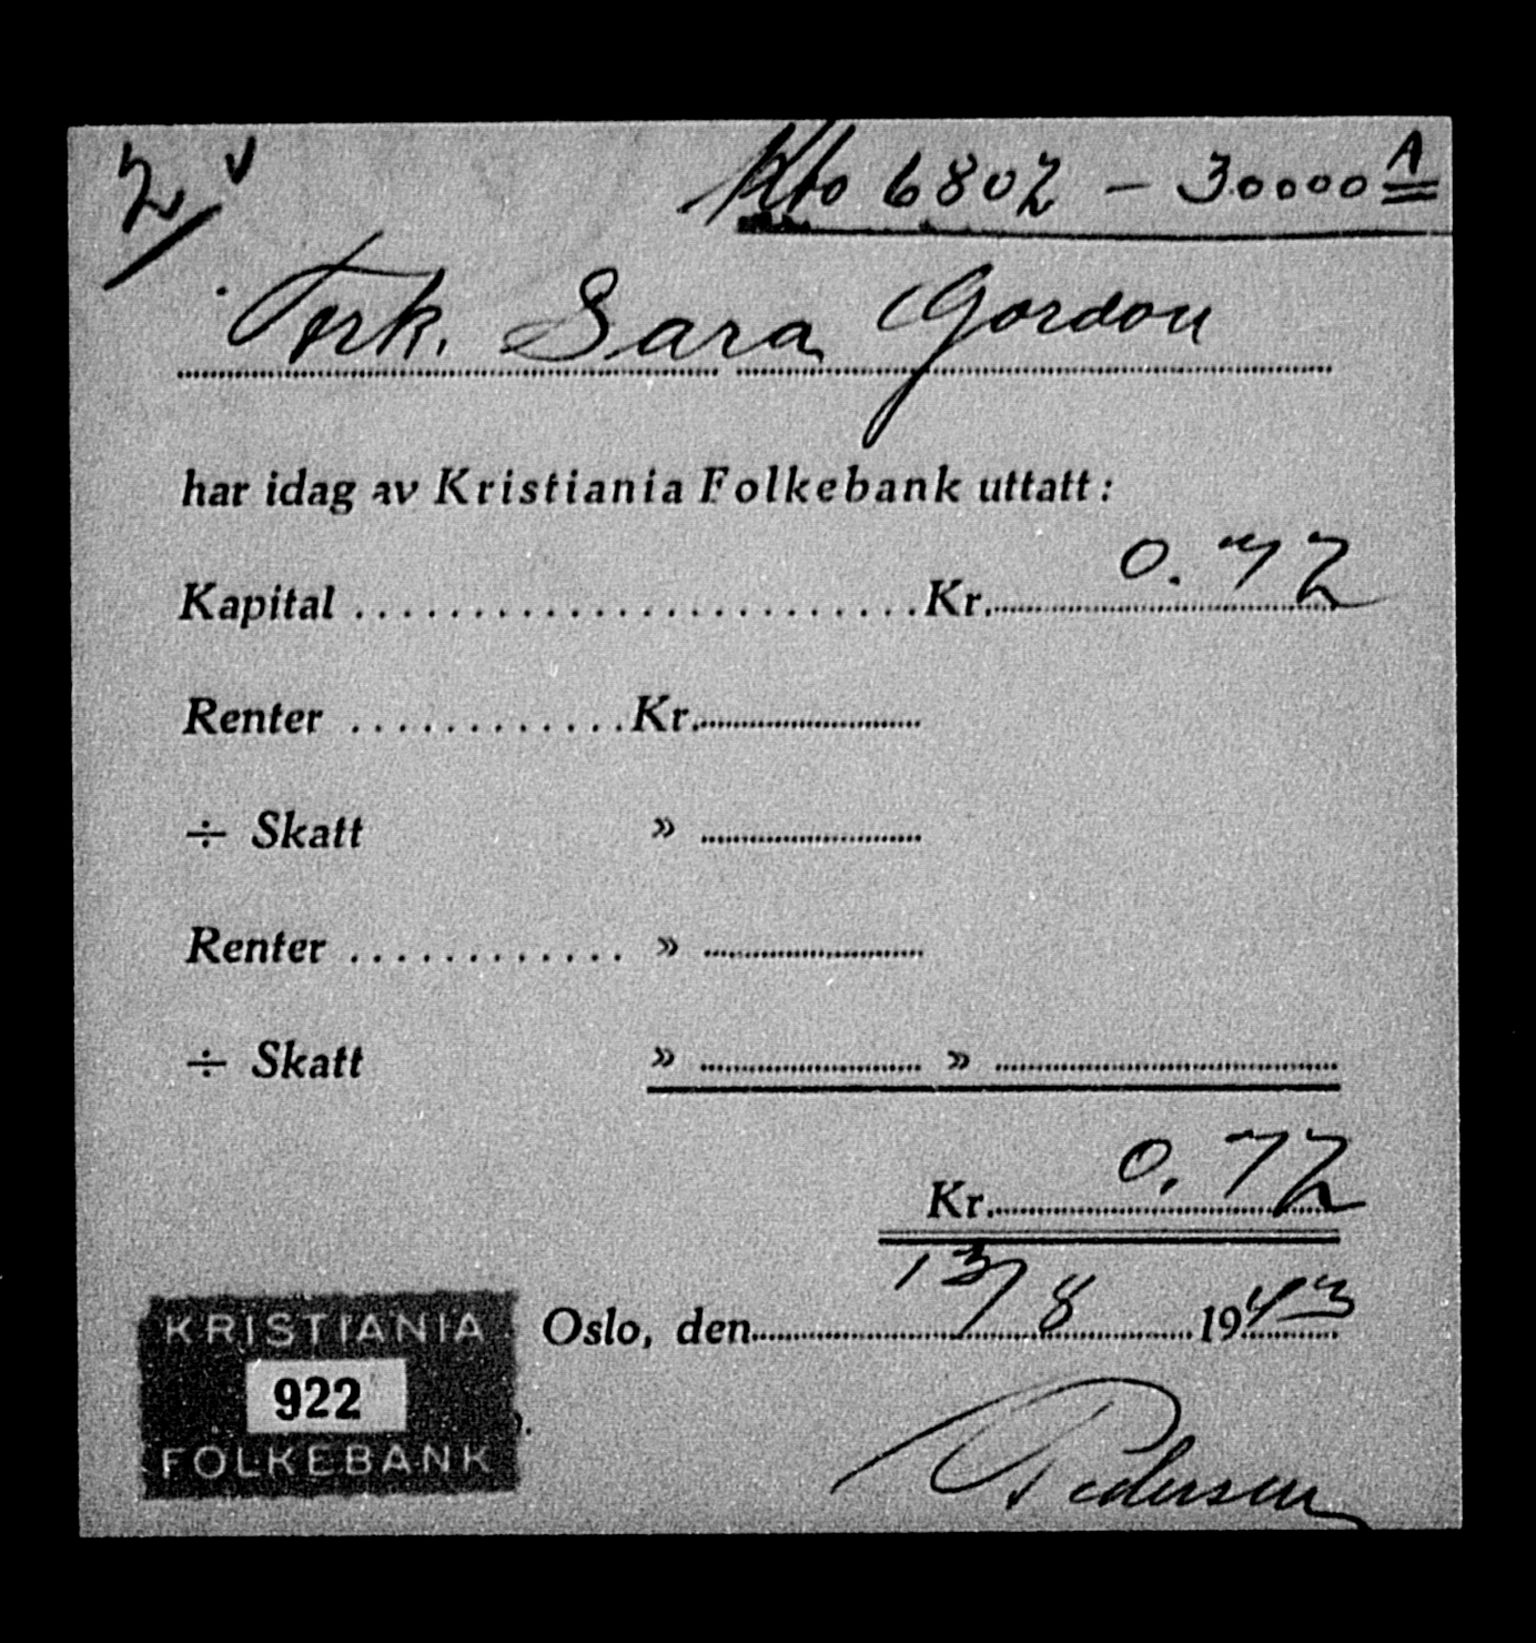 2 v
Kto 6802 - 30000 A
Frk. Sara Gordon
har idag av Kristiania Folkebank uttatt:
Kapital ........................ Kr. 0.72
Renter ............ Kr.
÷ Skatt »
Renter ............ »
÷ Skatt » »
Kr. 0.72
Oslo, den 13/8 1943
KRISTIANIA
922
FOLKEBANK
Pedersen